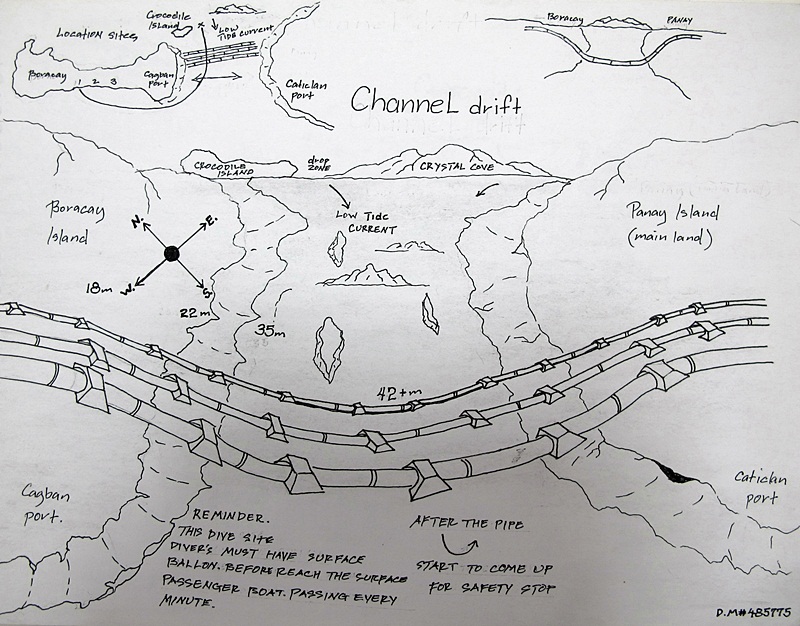 Location Sites
Crocodile
Island
x
Low
Tide Current
Boracay
1 2 3
Cagban
port
Caticlan
port
Boracay
PANAY
Channel drift
CROCODILE
ISLAND
drop
ZONE
CRYSTAL COVE
Low Tide
CURRENT
Boracay
Island
Panay Island
(main land)
N.
E.
W.
S.
18m
22m
35m
42+m
Cagban
port.
Caticlan
port
REMINDER.
THIS DIVE SITE
DIVER'S MUST HAVE SURFACE
BALLON. BEFORE REACH THE SURFACE
PASSENGER BOAT. PASSING EVERY
MINUTE.
AFTER THE PIPE
START TO COME UP
FOR SAFETY STOP
D.M#485775